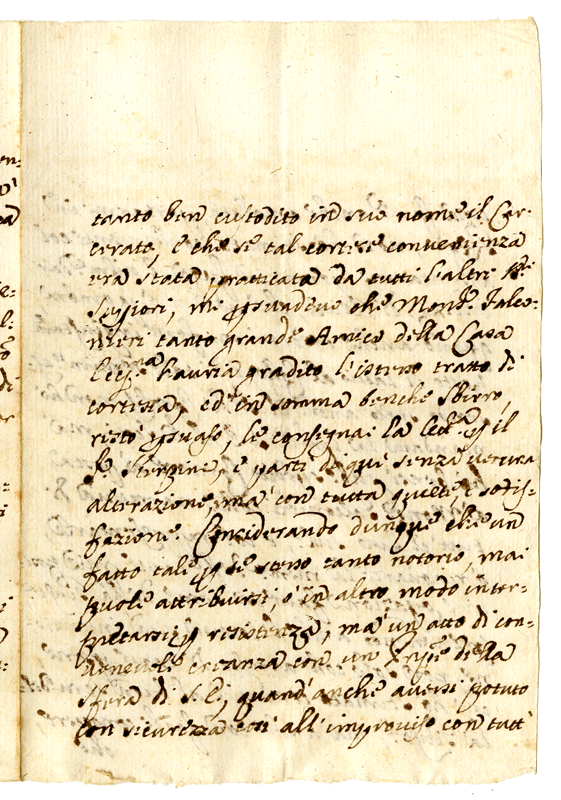 tanto ben custodito in suo nome il Car-
cerato, e che se tal cortese convenienza
era stata pratticata da tutti l'altri
mi persuadevo che Mons.r Falco-
nieri tanto grande Amico della Casa
l'avria gradito l'istesso tratto di
cortesia, ed in somma benche sbirro,
restò persuaso, le consegnai la il
e partì di qui senza veruna
alterazione, ma con tutta quiete, e sodis-
fazione. Considerando dunque che un
fatto tale per se stesso tanto notorio, mai
puole attribuirsi, o in altro modo inter-
pretarsi per resistenza, ma un atto di con-
venevole creanza con un della
sfera di S. E., quand'anche avessi potuto
con sicurezza così all'improviso con tutt'